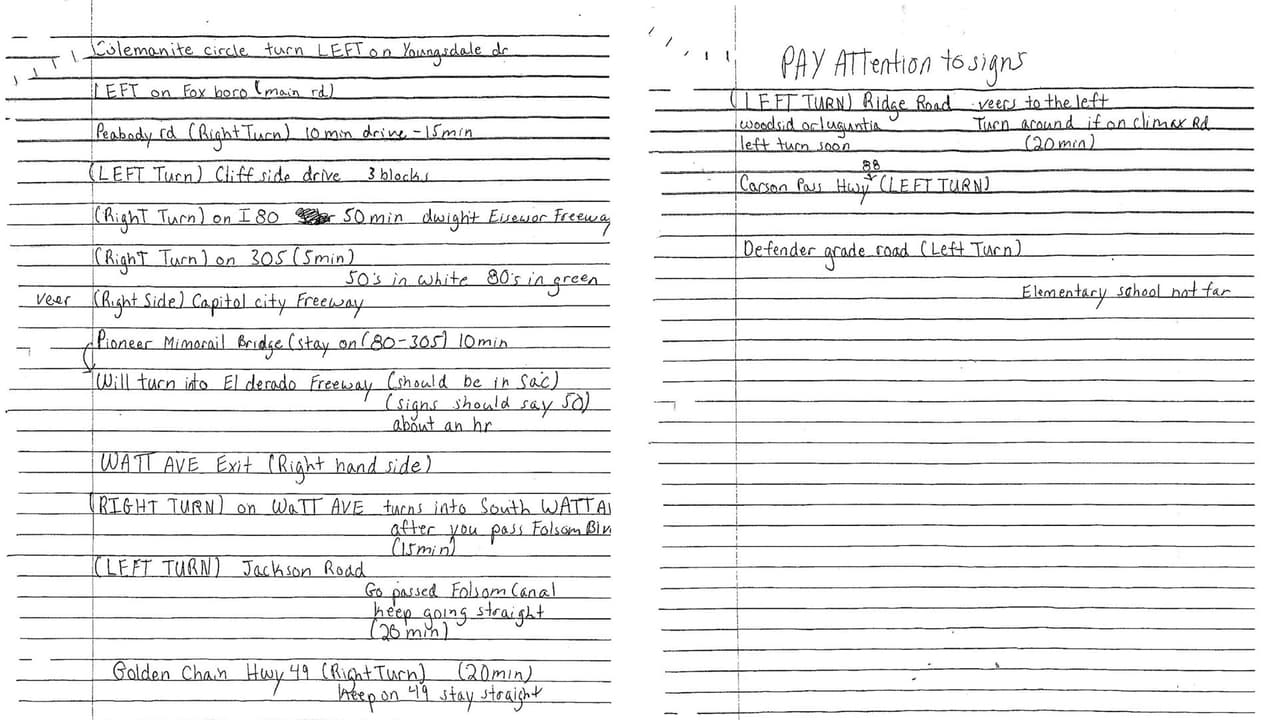 Colemanite circle turn LEFT on Youngsdale dr
LEFT on Foxboro (main rd)
Peabody rd (Right Turn) 10 min drive - 15 min
(LEFT Turn) Cliff side drive 3 blocks
(Right Turn) on I 80 50 min dwight Eisewor Freeway
(Right Turn) on 305 (5min)
50's in white 80's in green
veer (Right Side) Capitol city Freeway
Pioneer Mimorail Bridge (stay on (80-305) 10min
(Will turn into El derado Freeway (should be in Sac)
(signs should say 50)
about an hr
WATT AVE Exit (Right hand side)
(RIGHT TURN) on WaTT AVE turns into South WATT AV
after you pass Folsom Blv
(15min)
(LEFT TURN) Jackson Road
Go passed Folsom Canal
keep going straight
(26 min)
Golden Chain Hwy 49 (Right Turn) (20min)
keep on 49 stay straight
PAY ATTention to signs
(LEFT TURN) Ridge Road veers to the left
woodsid or luguntia Turn around if on climax Rd
left turn soon (20 min)
88
Carson Pass Hwy (LEFT TURN)
Defender grade road (Left Turn)
Elementary school not far